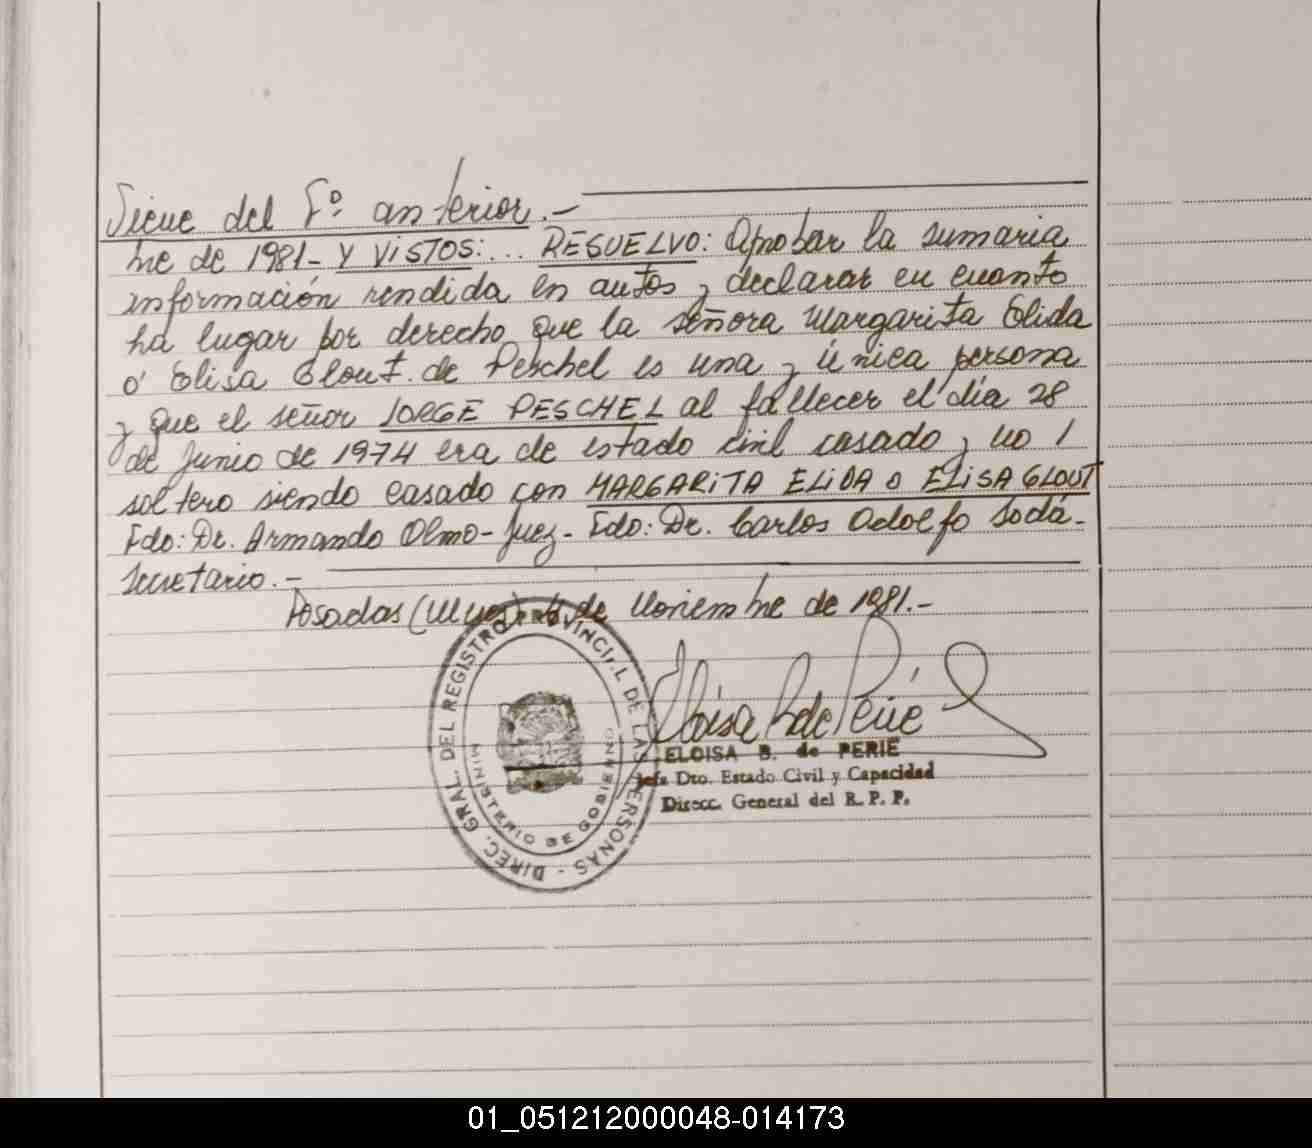 Viene del Fº anterior.-
bre de 1981- Y VISTOS:... RESUELVO: Aprobar la sumaria
información rendida en autos y declarar en cuanto
ha lugar por derecho que la señora Margarita Elida
ó Elisa Glout de Peschel es una y única persona
y que el señor JORGE PESCHEL al fallecer el día 28
de Junio de 1974 era de estado civil casado y no
soltero siendo casado con MARGARITA ELIDA o ELISA GLOUT
Fdo: Dr. Armando Olmo-Juez- Fdo: Dr. Carlos Adolfo Sodá-
Secretario.-
Posadas (Mnes) de Noviembre de 1981.-
DIREC. GRAL. DEL REGISTRO PROVINCIAL DE LAS PERSONAS -
MINISTERIO DE GOBIERNO
Eloisa B de Perié
ELOISA B. de PERIE
Jefa Dto. Estado Civil y Capacidad
Direcc. General del R. P. P.
01_051212000048-014173